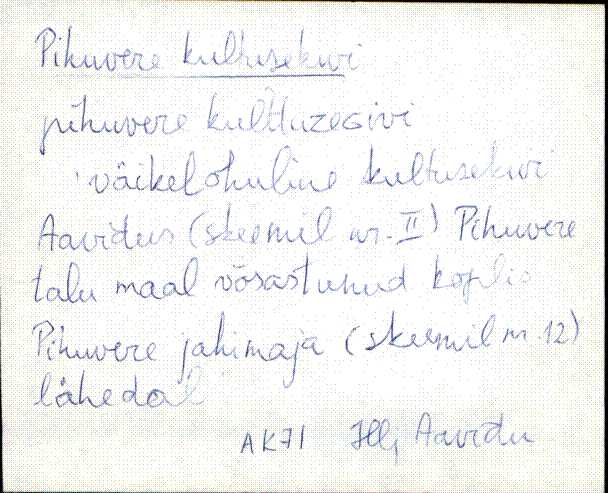 Pihuvere kultusekivi
pihuvere kulttuzeGivi
väikelohuline kultusekivi
Aavidus (skeemil nr. II) Pihuvere
talu maal võsastunud koplis
Pihuvere jahimaja (skeemil nr. 12)
lähedal
AK71 Hlj Aavidu